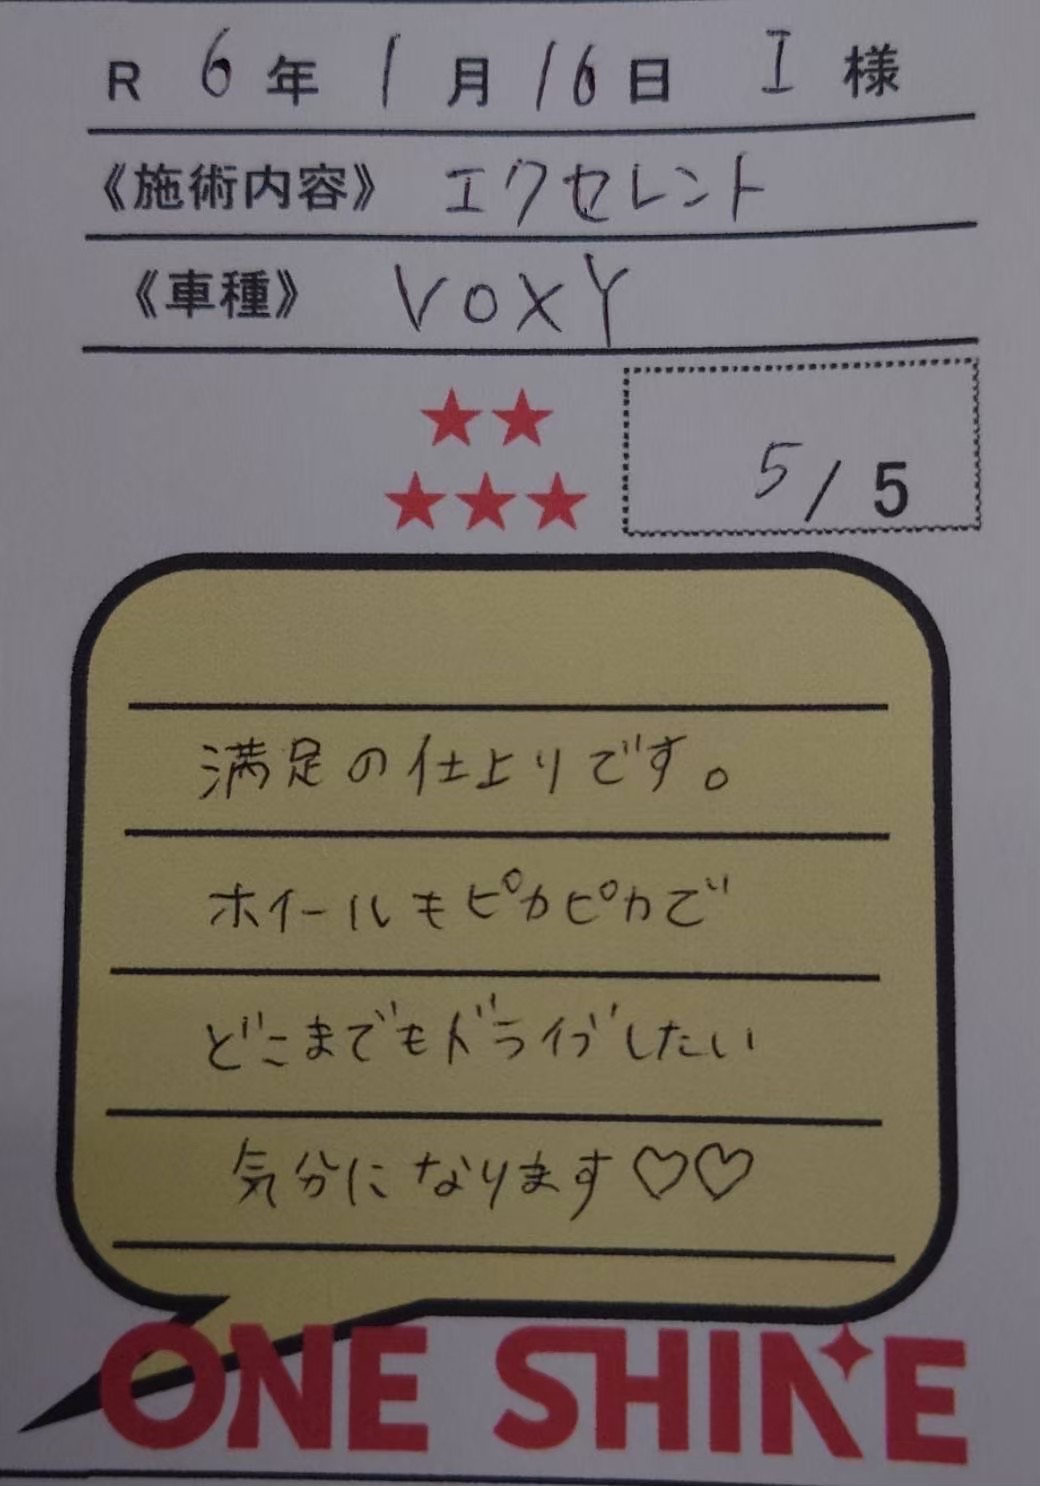 R 6年 1月 16日 I 様
《施術内容》 エクセレント
《車種》 VOXY
5/5
満足の仕上りです。
ホイールもピカピカで
どこまでもドライブしたい
気分になります♡♡
ONE SHINE